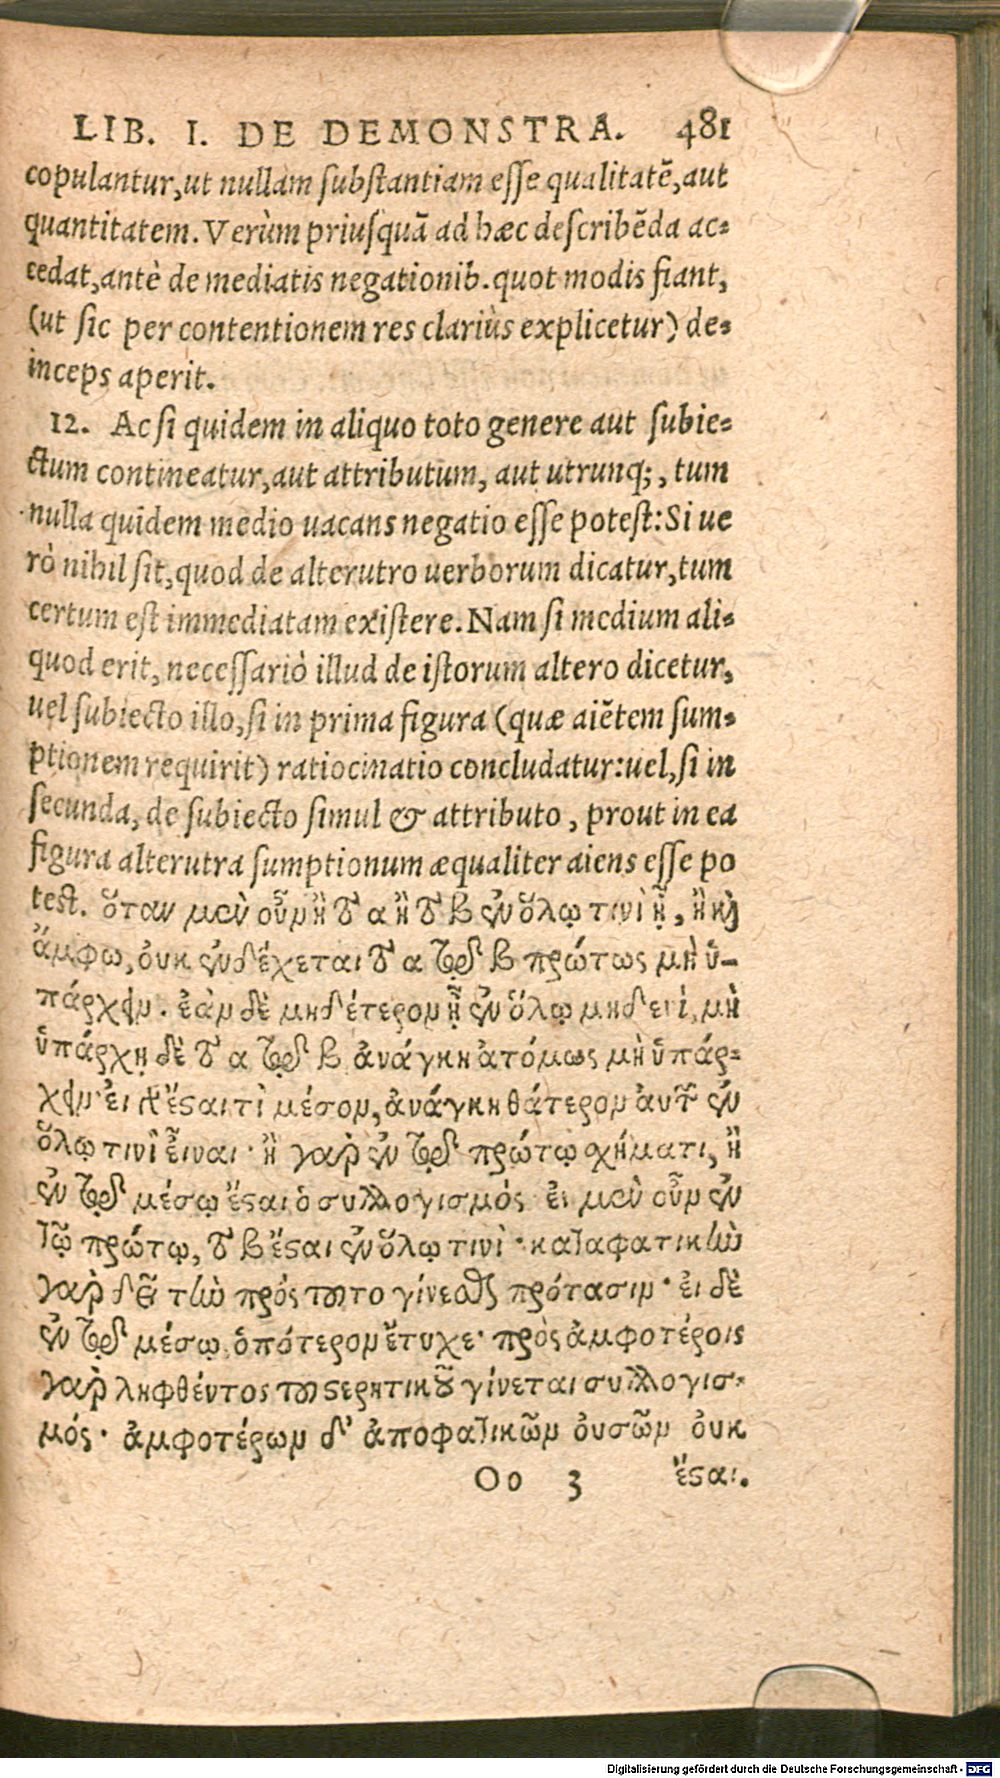 LIB. I. DE DEMONSTRA. 481
copulantur, ut nullam substantiam esse qualitatē, aut
quantitatem. Verùm priusquā ad hæc describēda ac-
cedat, antè de mediatis negationib. quot modis fiant,
(ut sic per contentionem res clariùs explicetur) de-
inceps aperit.
12. Ac si quidem in aliquo toto genere aut subie-
ctum contineatur, aut attributum, aut utrunq;, tum
nulla quidem medio uacans negatio esse potest: Si ue
rò nihil sit, quod de alterutro uerborum dicatur, tum
certum est immediatam existere. Nam si medium ali-
quod erit, necessariò illud de istorum altero dicetur,
uel subiecto illo, si in prima figura (quæ aiētem sum-
ptionem requirit) ratiocinatio concludatur: uel, si in
secunda, de subiecto simul & attributo, prout in ea
figura alterutra sumptionum æqualiter aiens esse po
test. ὅταν μὲν οὖν ἢ τὸ α ἢ τὸ β ἐν ὅλῳ τινὶ ᾖ, ἢ καὶ
ἄμφω, οὐκ ἐνδέχεται τὸ α τῷ β πρώτως μὴ ὑ-
πάρχειν. ἐὰν δὲ μηδέτερον ᾖ ἐν ὅλῳ μηδενί, μὴ
ὑπάρχῃ δὲ τὸ α τῷ β ἀνάγκη ἀτόμως μὴ ὑπάρ-
χειν· εἰ γὰρ ἔσαι τὶ μέσον, ἀνάγκη θάτερον αὐτῶν ἐν
ὅλῳ τινὶ εἶναι· ἢ γὰρ ἐν τῷ πρώτῳ χήματι, ἢ
ἐν τῷ μέσῳ ἔσαι ὁ συλλογισμός. εἰ μὲν οὖν ἐν
τῷ πρώτῳ, τὸ β ἔσαι ἐν ὅλῳ τινὶ· καταφατικὴν
γὰρ δεῖ τὴν πρὸς τοῦτο γίνεσθαι πρότασιν· εἰ δὲ
ἐν τῷ μέσῳ, ὁπότερον ἔτυχε· πρὸς ἀμφοτέροις
γὰρ ληφθέντος τοῦ σερητικοῦ γίνεται συλλογισ-
μός· ἀμφοτέρων δ' ἀποφατικῶν οὐσῶν οὐκ
Oo 3 ἔσαι.
Digitalisierung gefördert durch die Deutsche Forschungsgemeinschaft - DFG